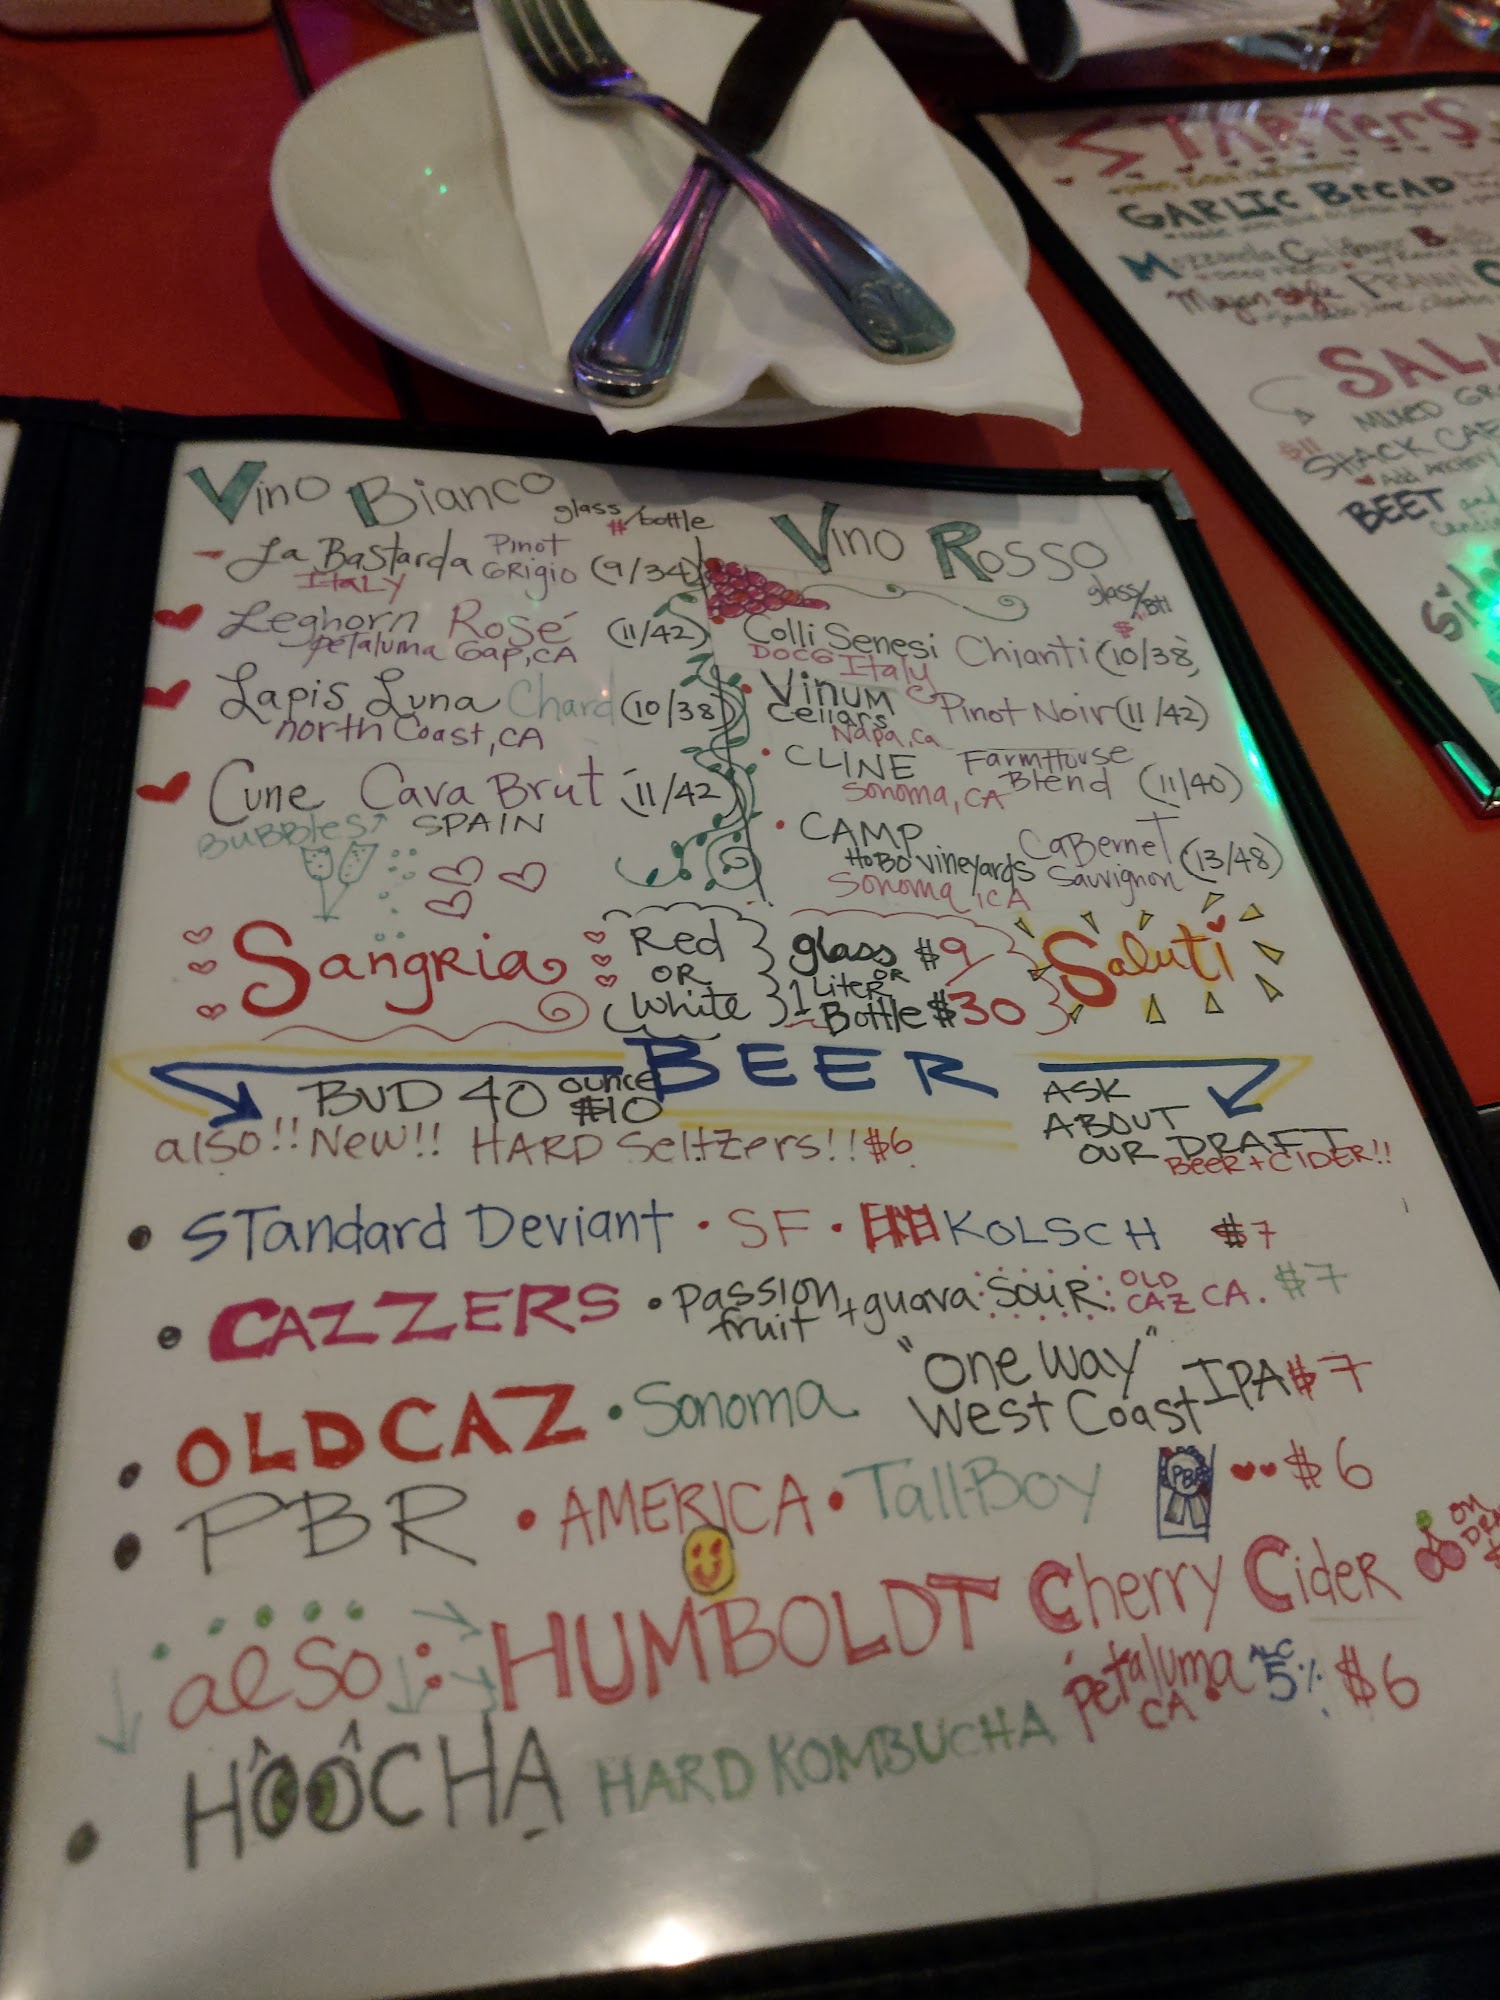 Vino Bianco
glass/bottle
$
La Bastarda Pinot Grigio (9/34)
Italy
Leghorn Rosé (11/42)
Petaluma Gap, CA
Lapis Luna Chard (10/38)
North Coast, CA
Cune Cava Brut (11/42)
Bubbles SPAIN
Vino Rosso
glass/Btl
$
Colli Senesi Chianti (10/38)
DOCG Italy
Vinum Cellars Pinot Noir (11/42)
Napa, Ca
CLINE Farmhouse Blend (11/40)
Sonoma, CA
CAMP Cabernet Sauvignon (13/48)
HoBo Vineyards
Sonoma, CA
Sangria Red OR White glass $9 OR 1 Liter Bottle $30 Saluti
BEER
BUD 40 ounce $10
also!! New!! HARD Seltzers!! $6
ASK
ABOUT
OUR DRAFT
BEER + CIDER!!
• Standard Deviant • SF • KOLSCH $7
• CAZZERS • Passion fruit + guava SOUR OLD CAZ CA. $7
• OLD CAZ • Sonoma "One Way" West Coast IPA $7
• PBR • AMERICA • TallBoy PBR $6
also: HUMBOLDT Cherry Cider ON
• HOOCHA HARD KOMBUCHA Petaluma CA ALC 5% $6
STARTERS
GARLIC BREAD
Mozzarella Cauliflower
Mayan Style PRAWN
SALA
MIXED GR
$11
SHACK CAE
Add
BEET and